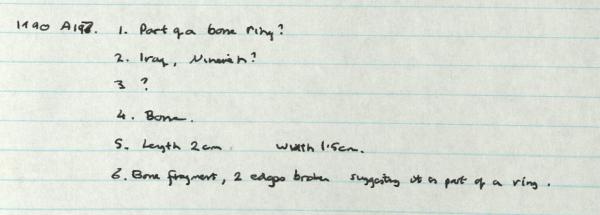 1190 A198. 1. Part of a bone ring?
2. Iraq, Nineveh?
3 ?
4. Bone.
5. Length 2cm width 1.5cm.
6. Bone fragment, 2 edges broken suggesting it is part of a ring.